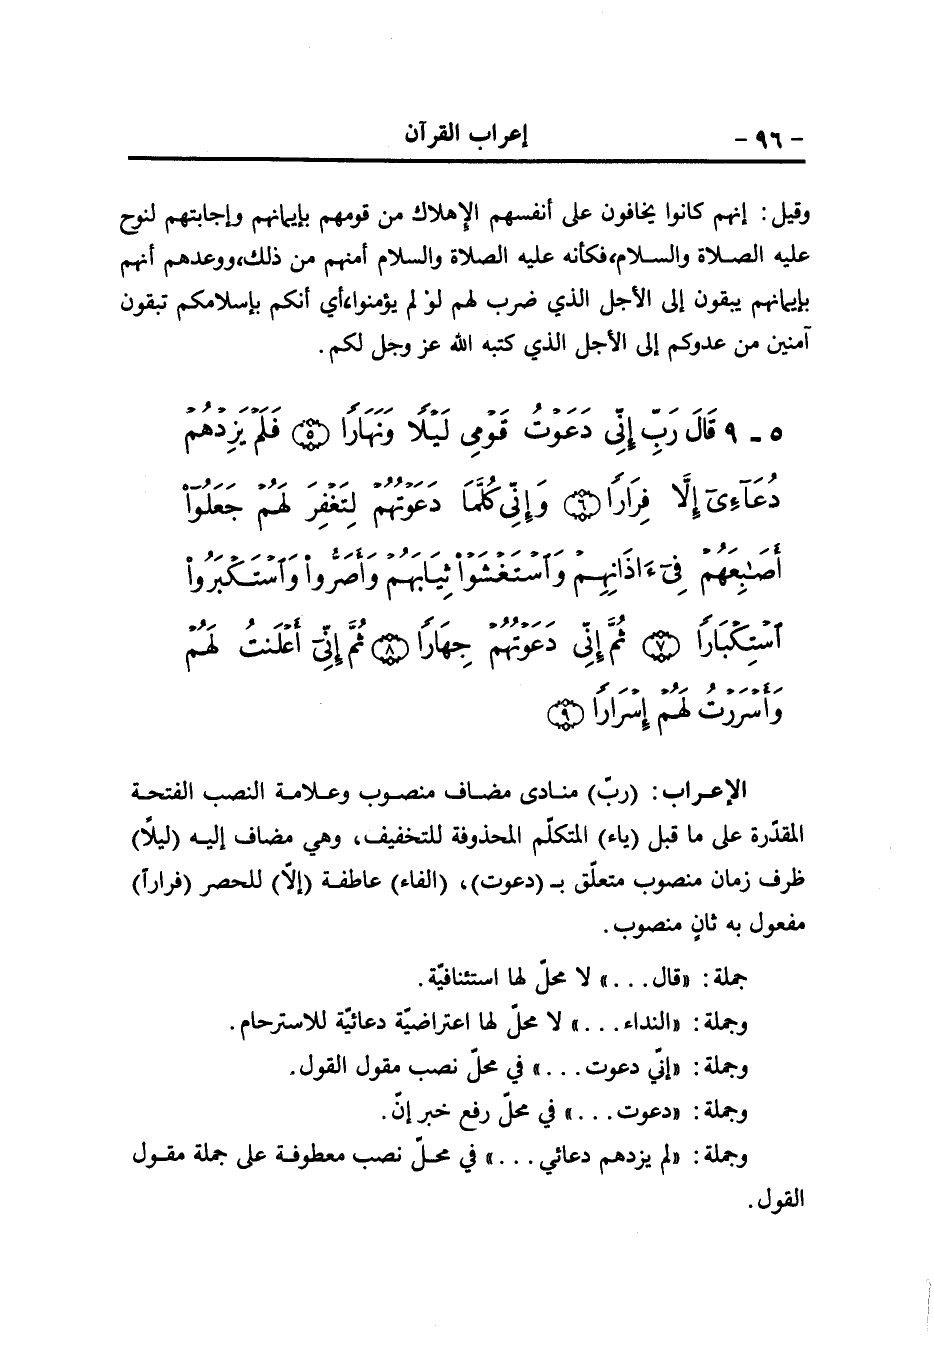 - ٩٦ - إعراب القرآن
وقيل: إنهم كانوا يخافون على أنفسهم الإهلاك من قومهم بإيمانهم وإجابتهم لنوح
عليه الصلاة والسلام،فكأنه عليه الصلاة والسلام أمنهم من ذلك،ووعدهم أنهم
بإيمانهم يبقون إلى الأجل الذي ضرب لهم لوْ لم يؤمنوا،أي أنكم بإسلامكم تبقون
آمنين من عدوكم إلى الأجل الذي كتبه الله عز وجل لكم.
٥ - ٩ قَالَ رَبِّ إِنِّي دَعَوْتُ قَوْمِي لَيْلًا وَنَهَارًا ٥ فَلَمْ يَزِدْهُمْ
دُعَآءِىٓ إِلَّا فِرَارًا ٦ وَإِنِّي كُلَّمَا دَعَوْتُهُمْ لِتَغْفِرَ لَهُمْ جَعَلُوٓاْ
أَصَٰبِعَهُمْ فِىٓ ءَاذَانِهِمْ وَٱسْتَغْشَوْاْ ثِيَابَهُمْ وَأَصَرُّواْ وَٱسْتَكْبَرُواْ
ٱسْتِكْبَارًا ٧ ثُمَّ إِنِّي دَعَوْتُهُمْ جِهَارًا ٨ ثُمَّ إِنِّىٓ أَعْلَنتُ لَهُمْ
وَأَسْرَرْتُ لَهُمْ إِسْرَارًا ٩
الإعراب: (ربّ) منادى مضاف منصوب وعلامة النصب الفتحة
المقدّرة على ما قبل (ياء) المتكلّم المحذوفة للتخفيف، وهي مضاف إليه (ليلًا)
ظرف زمان منصوب متعلّق بـ (دعوت)، (الفاء) عاطفة (إلاّ) للحصر (فراراً)
مفعول به ثانٍ منصوب.
جملة: «قال...» لا محلّ لها استئنافيّة.
وجملة: «النداء...» لا محلّ لها اعتراضيّة دعائيّة للاسترحام.
وجملة: «إنّي دعوت...» في محلّ نصب مقول القول.
وجملة: «دعوت...» في محلّ رفع خبر إنّ.
وجملة: «لم يزدهم دعائي...» في محلّ نصب معطوفة على جملة مقول
القول.